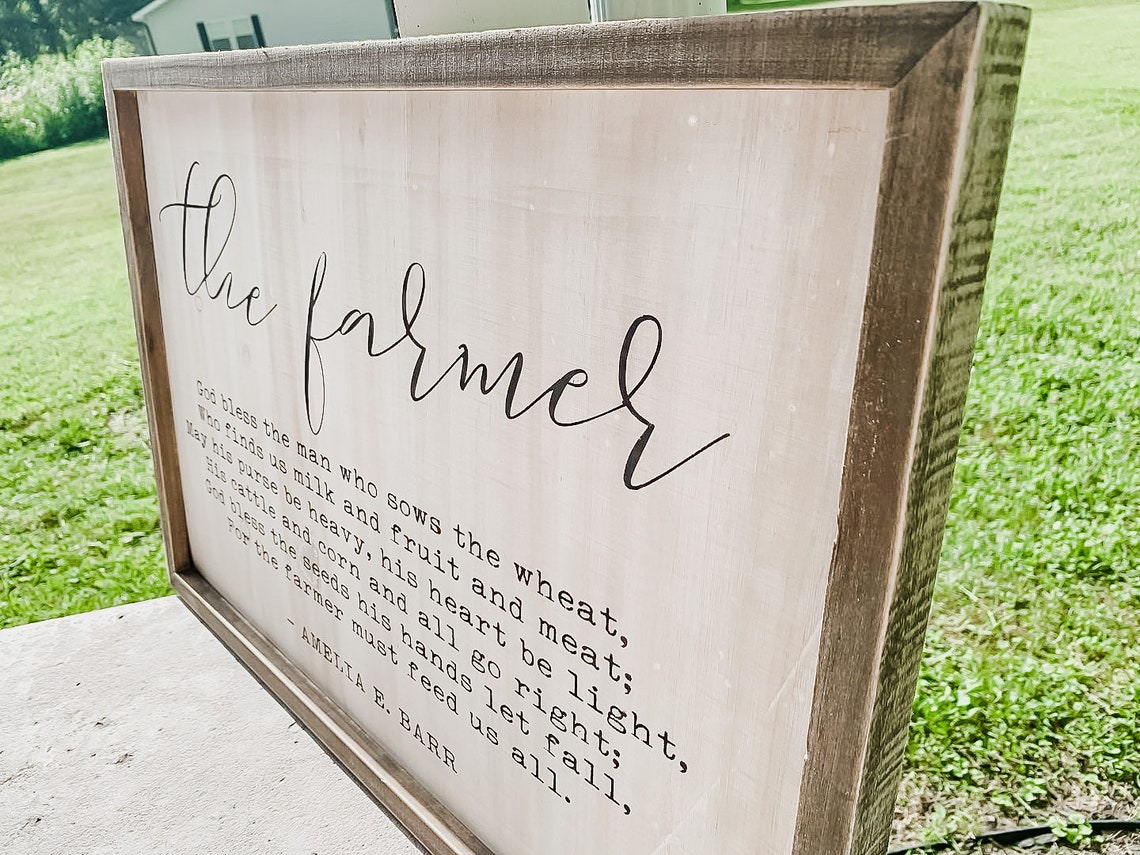 the farmer
God bless the man who sows the wheat,
Who finds us milk and fruit and meat;
May his purse be heavy, his heart be light,
His cattle and corn and all go right;
God bless the seeds his hands let fall,
For the farmer must feed us all.
- AMELIA E. BARR